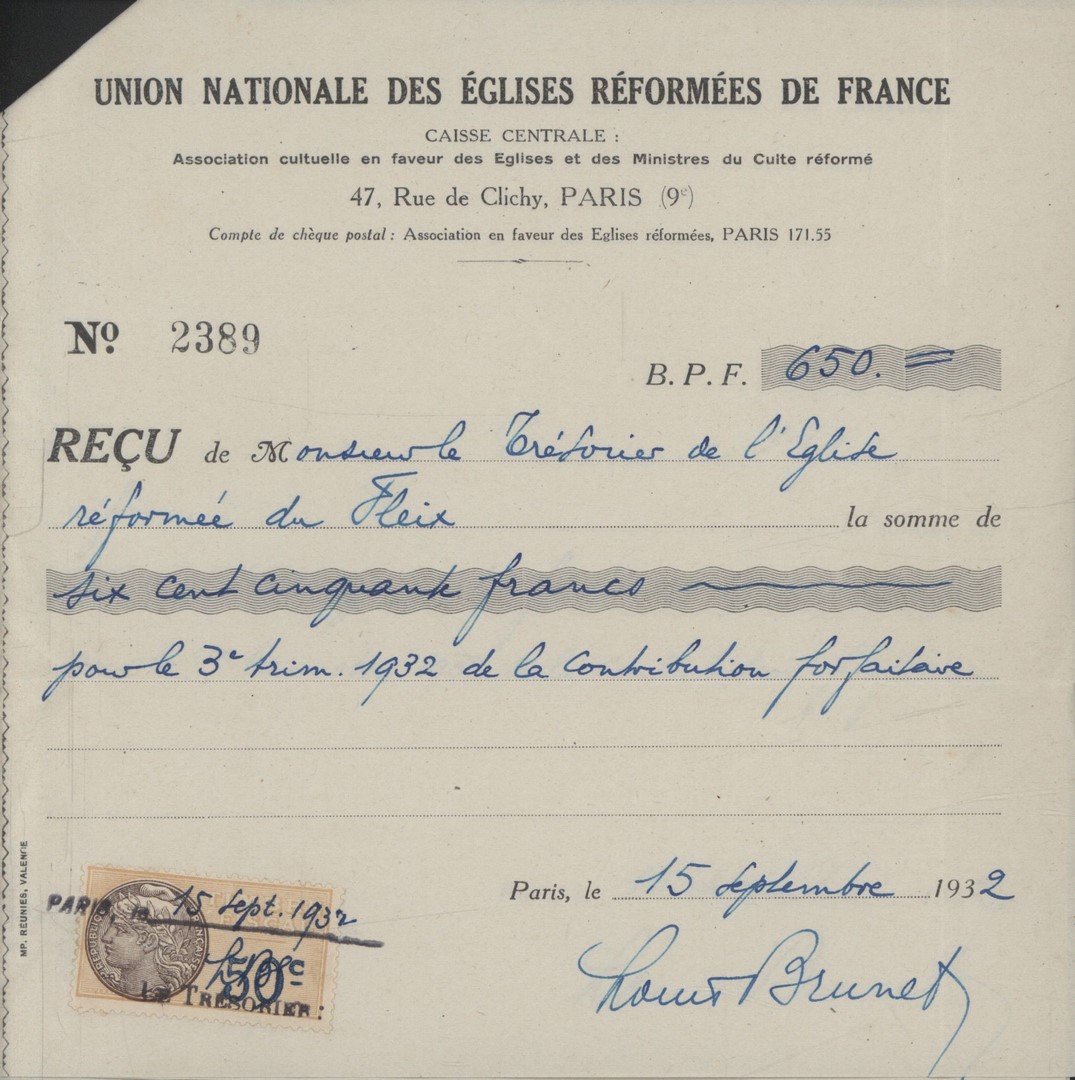 UNION NATIONALE DES ÉGLISES RÉFORMÉES DE FRANCE
CAISSE CENTRALE :
Association cultuelle en faveur des Eglises et des Ministres du Culte réformé
47, Rue de Clichy, PARIS (9e)
Compte de chèque postal : Association en faveur des Eglises réformées, PARIS 171.55
No. 2389
B. P. F. 650. =
REÇU de Monsieur le Trésorier de l'Eglise
réformée du Fleix la somme de
six cent cinquante francs
pour le 3e trim. 1932 de la Contribution forfaitaire
Paris, le 15 Septembre 1932
Louis Brunet
PARIS, le 15 Sept. 1932
RÉPUBLIQUE FRANÇAISE
50c
LE TRÉSORIER :
MP. REUNIES, VALENCE